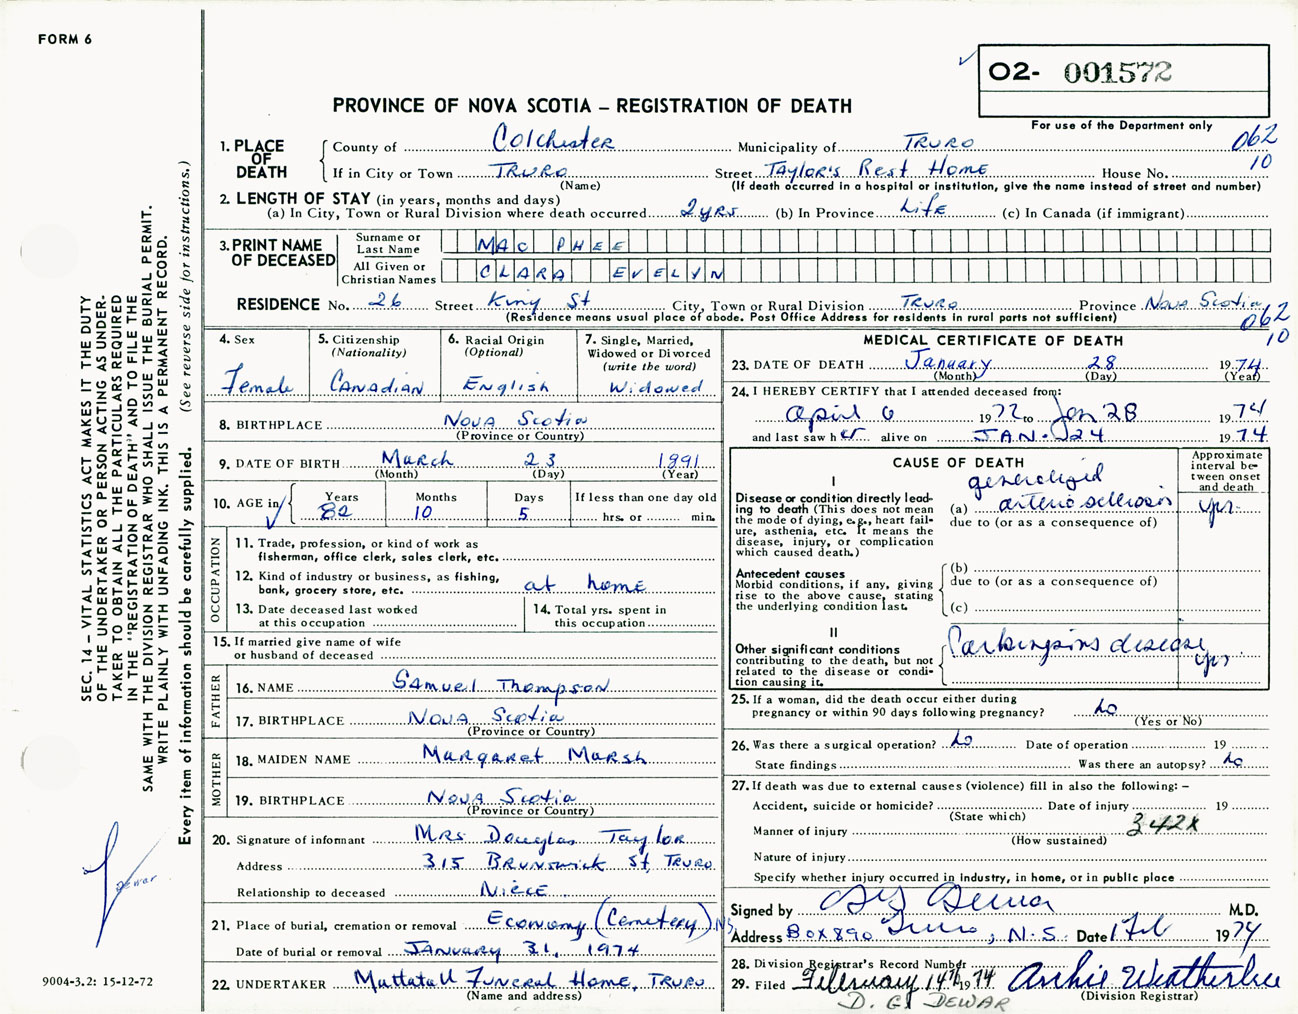 FORM 6
O2- 001572
PROVINCE OF NOVA SCOTIA – REGISTRATION OF DEATH
For use of the Department only
062
10
1. PLACE OF DEATH
County of Colchester Municipality of TRURO
If in City or Town TRURO Street TAYLOR'S Rest Home House No.
(Name) (If death occurred in a hospital or institution, give the name instead of street and number)
2. LENGTH OF STAY (in years, months and days)
(a) In City, Town or Rural Division where death occurred 2 yrs (b) In Province Life (c) In Canada (if immigrant)
3. PRINT NAME OF DECEASED
Surname or Last Name MAC PHEE
All Given or Christian Names CLARA EVELYN
RESIDENCE No. 26 Street King St City, Town or Rural Division TRURO Province NOVA SCOTIA
(Residence means usual place of abode. Post Office Address for residents in rural parts not sufficient)
062
10
4. Sex
Female
5. Citizenship
(Nationality)
CANADIAN
6. Racial Origin
(Optional)
English
7. Single, Married,
Widowed or Divorced
(write the word)
Widowed
8. BIRTHPLACE NOVA SCOTIA
(Province or Country)
9. DATE OF BIRTH March 23 1891
(Month) (Day) (Year)
10. AGE in
Years Months Days If less than one day old
82 10 5 hrs. or min.
OCCUPATION
11. Trade, profession, or kind of work as
fisherman, office clerk, sales clerk, etc.
12. Kind of industry or business, as fishing,
bank, grocery store, etc. at home
13. Date deceased last worked
at this occupation
14. Total yrs. spent in
this occupation
15. If married give name of wife
or husband of deceased
FATHER
16. NAME Samuel Thompson
17. BIRTHPLACE NOVA SCOTIA
(Province or Country)
MOTHER
18. MAIDEN NAME Margaret Marsh
19. BIRTHPLACE NOVA SCOTIA
(Province or Country)
20. Signature of informant MRS Douglas Taylor
Address 315 BRUNSWICK St, TRURO
Relationship to deceased NIECE
21. Place of burial, cremation or removal Economy (Cemetery) NS
Date of burial or removal JANUARY 31, 1974
22. UNDERTAKER Mattatall FUNERAL Home, TRURO
(Name and address)
MEDICAL CERTIFICATE OF DEATH
23. DATE OF DEATH January 28 1974
(Month) (Day) (Year)
24. I HEREBY CERTIFY that I attended deceased from:
April 6 1972 to Jan 28 1974
and last saw her alive on JAN. 24 1974
CAUSE OF DEATH
Approximate interval between onset and death
I
Disease or condition directly leading to death (This does not mean the mode of dying, e.g., heart failure, asthenia, etc. It means the disease, injury, or complication which caused death.)
generalized
(a) arterio sclerosis yrs
due to (or as a consequence of)
Antecedent causes
Morbid conditions, if any, giving
rise to the above cause, stating
the underlying condition last.
(b)
due to (or as a consequence of)
(c)
II
Other significant conditions
contributing to the death, but not
related to the disease or condition causing it.
Parkinsons disease yrs
25. If a woman, did the death occur either during
pregnancy or within 90 days following pregnancy? No
(Yes or No)
26. Was there a surgical operation? No Date of operation 19
State findings Was there an autopsy? No
27. If death was due to external causes (violence) fill in also the following: –
Accident, suicide or homicide? Date of injury 19
(State which)
Manner of injury 342X
(How sustained)
Nature of injury
Specify whether injury occurred in industry, in home, or in public place
Signed by DG Dewar M.D.
Address Box 890 Truro, N.S. Date 1 Feb 1974
28. Division Registrar's Record Number
29. Filed February 14th 1974 Archie Weatherbee
(Division Registrar)
D. G. DEWAR
SEC. 14 – VITAL STATISTICS ACT MAKES IT THE DUTY
OF THE UNDERTAKER OR PERSON ACTING AS UNDER-
TAKER TO OBTAIN ALL THE PARTICULARS REQUIRED
IN THE "REGISTRATION OF DEATH" AND TO FILE THE
SAME WITH THE DIVISION REGISTRAR WHO SHALL ISSUE THE BURIAL PERMIT.
WRITE PLAINLY WITH UNFADING INK. THIS IS A PERMANENT RECORD.
Every item of information should be carefully supplied. (See reverse side for instructions.)
Dewar
9004-3.2: 15-12-72